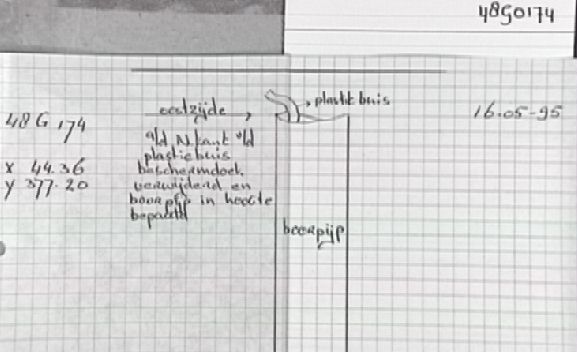 48G0174
48G 174
x 44.36
y 377.20
oostzijde
plastic buis
beschermdoek
verwijderd en
boorpijp in hoogte
bepaald
plastik buis
boorpijp
16-05-95